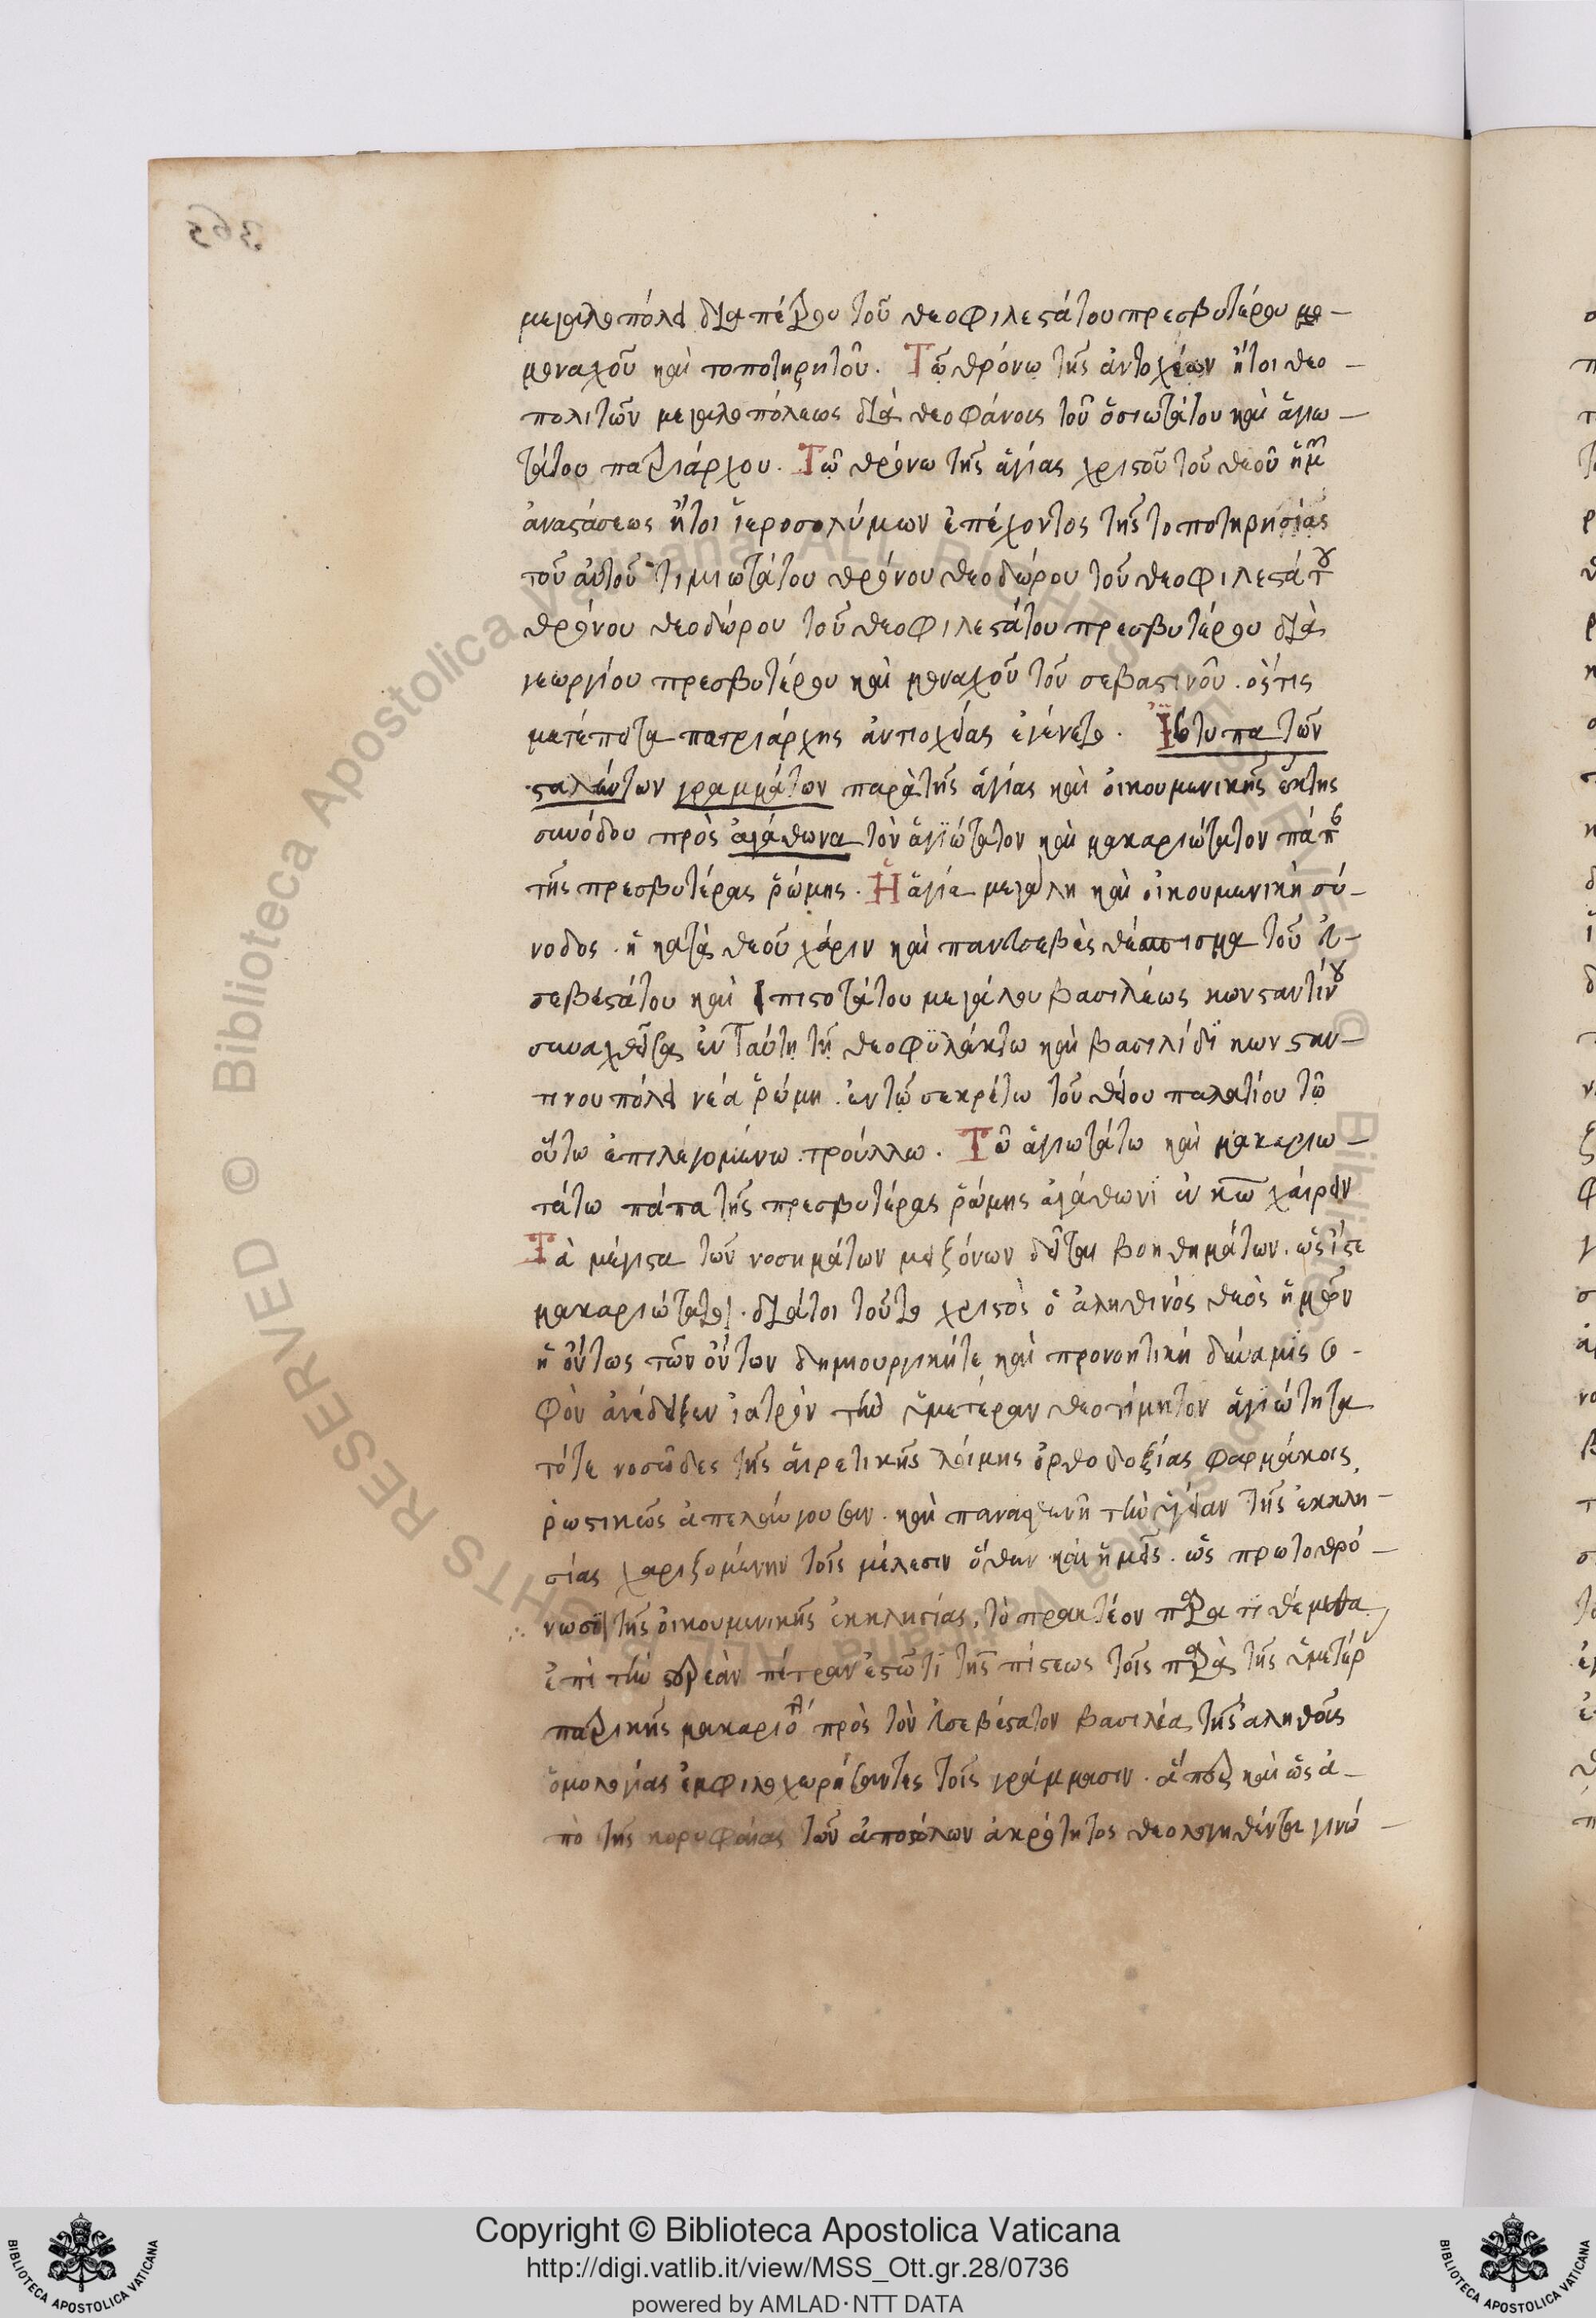 μεγαλοπόλει διὰ πέτρου τοῦ θεοφιλεστάτου πρεσβυτέρου μο –
μοναχοῦ καὶ τοποτηρητοῦ. Τῷ θρόνω τῆς ἀντιοχέων ἤτοι θεο –
πολιτῶν μεγαλοπόλεως διὰ θεοφάνους τοῦ ὁσιωτάτου καὶ ἁγιω –
τάτου πατριάρχου. Τῷ θρόνω τῆς ἁγίας χριστοῦ τοῦ θεοῦ ἡμ
ἀναστάσεως ἤτοι ἱεροσολύμων ἐπέχοντος τῆς τοποτηρησίας
τοῦ αὐτοῦ τιμιωτάτου θρόνου θεοδώρου τοῦ θεοφιλεστάτου
θρόνου θεοδώρου τοῦ θεοφιλεστάτου πρεσβυτέρου διὰ
γεωργίου πρεσβυτέρου καὶ μοναχοῦ τοῦ σεβαστινοῦ. ὅςτις
μετέπειτα πατριάρχης ἀντιοχείας ἐγένετο. Ἰσότυπα τῶν
σταλέντων γραμμάτων παρὰ τῆς ἁγίας καὶ οἰκουμενικῆς ἕκτης
συνόδου πρὸς ἀγάθωνα τὸν ἁγιώτατον καὶ μακαριώτατον πάπ
τῆς πρεσβυτέρας ῥώμης. Ἡ ἁγία μεγάλη καὶ οἰκουμενικὴ σύ –
νοδος. ἡ κατὰ θεοῦ χάριν καὶ πανευσεβὲς θέσπισμα τοῦ εὐ –
σεβεστάτου καὶ πιστοτάτου μεγάλου βασιλέως κωνσταντίνου
συναχθεῖσα ἐν ταύτη τῇ θεοφυλάκτω καὶ βασιλίδι κωνσταν –
τινουπόλει νέα ῥώμη. ἐν τῷ σεκρέτω τοῦ θείου παλατίου τῷ
οὕτω ἐπιλεγομένω τρούλλω. Τῷ ἁγιωτάτω καὶ μακαριω –
τάτω πάπα τῆς πρεσβυτέρας ῥώμης ἀγάθωνι ἐν κω χαίρειν
Τὰ μέγιστα τῶν νοσημάτων μειζόνων δεῖται βοηθημάτων. ὡς ἴστε
μακαριώτατοι. διάτοι τοῦτο χριστὸς ὁ ἀληθινός θεὸς ἡμῶν
ἡ ὄντως τῶν ὄντων δημιουργικήτε καὶ προνοητική δύναμις σο -
φὸν ἀνέδειξεν ἰατρὸν τὴν ὑμετέραν θεοτίμητον ἁγιώτητα
τότε νοσῶδες τῆς αἱρετικῆς λοίμης ὀρθοδοξίας φαρμάκοις,
ῥωστικῶς ἀπελαύνουσαν. καὶ τὴν ὑγείαν τῆς ἐκκλη –
σίας χαριζομένην τοῖς μέλεσιν ὅθεν καὶ ἡμεῖς. ὡς πρωτοθρό –
νωσοι τῆς οἰκουμενικῆς ἐκκλησίας, τὸ πρακτέον παρατιθέμεθα
ἐπὶ τὴν στερεὰν πέτραν ἑστῶτι τῆς πίστεως τοῖς παρὰ τῆς ὑμετέρ
πατρικῆς μακαριό πρὸς τὸν εὐσεβέστατον βασιλέα τῆς ἀληθοῦς
ὁμολογίας ἐμφιλοχωρήσαντες τοῖς γράμμασιν. ἅπερ καὶ ὡς ἀ –
πὸ τῆς κορυφαίας τῶν ἀποστόλων ἀκρότητος θεολογηθέντα γινώ –
Copyright © Biblioteca Apostolica Vaticana
http://digi.vatlib.it/view/MSS_Ott.gr.28/0736
powered by AMLAD·NTT DATA